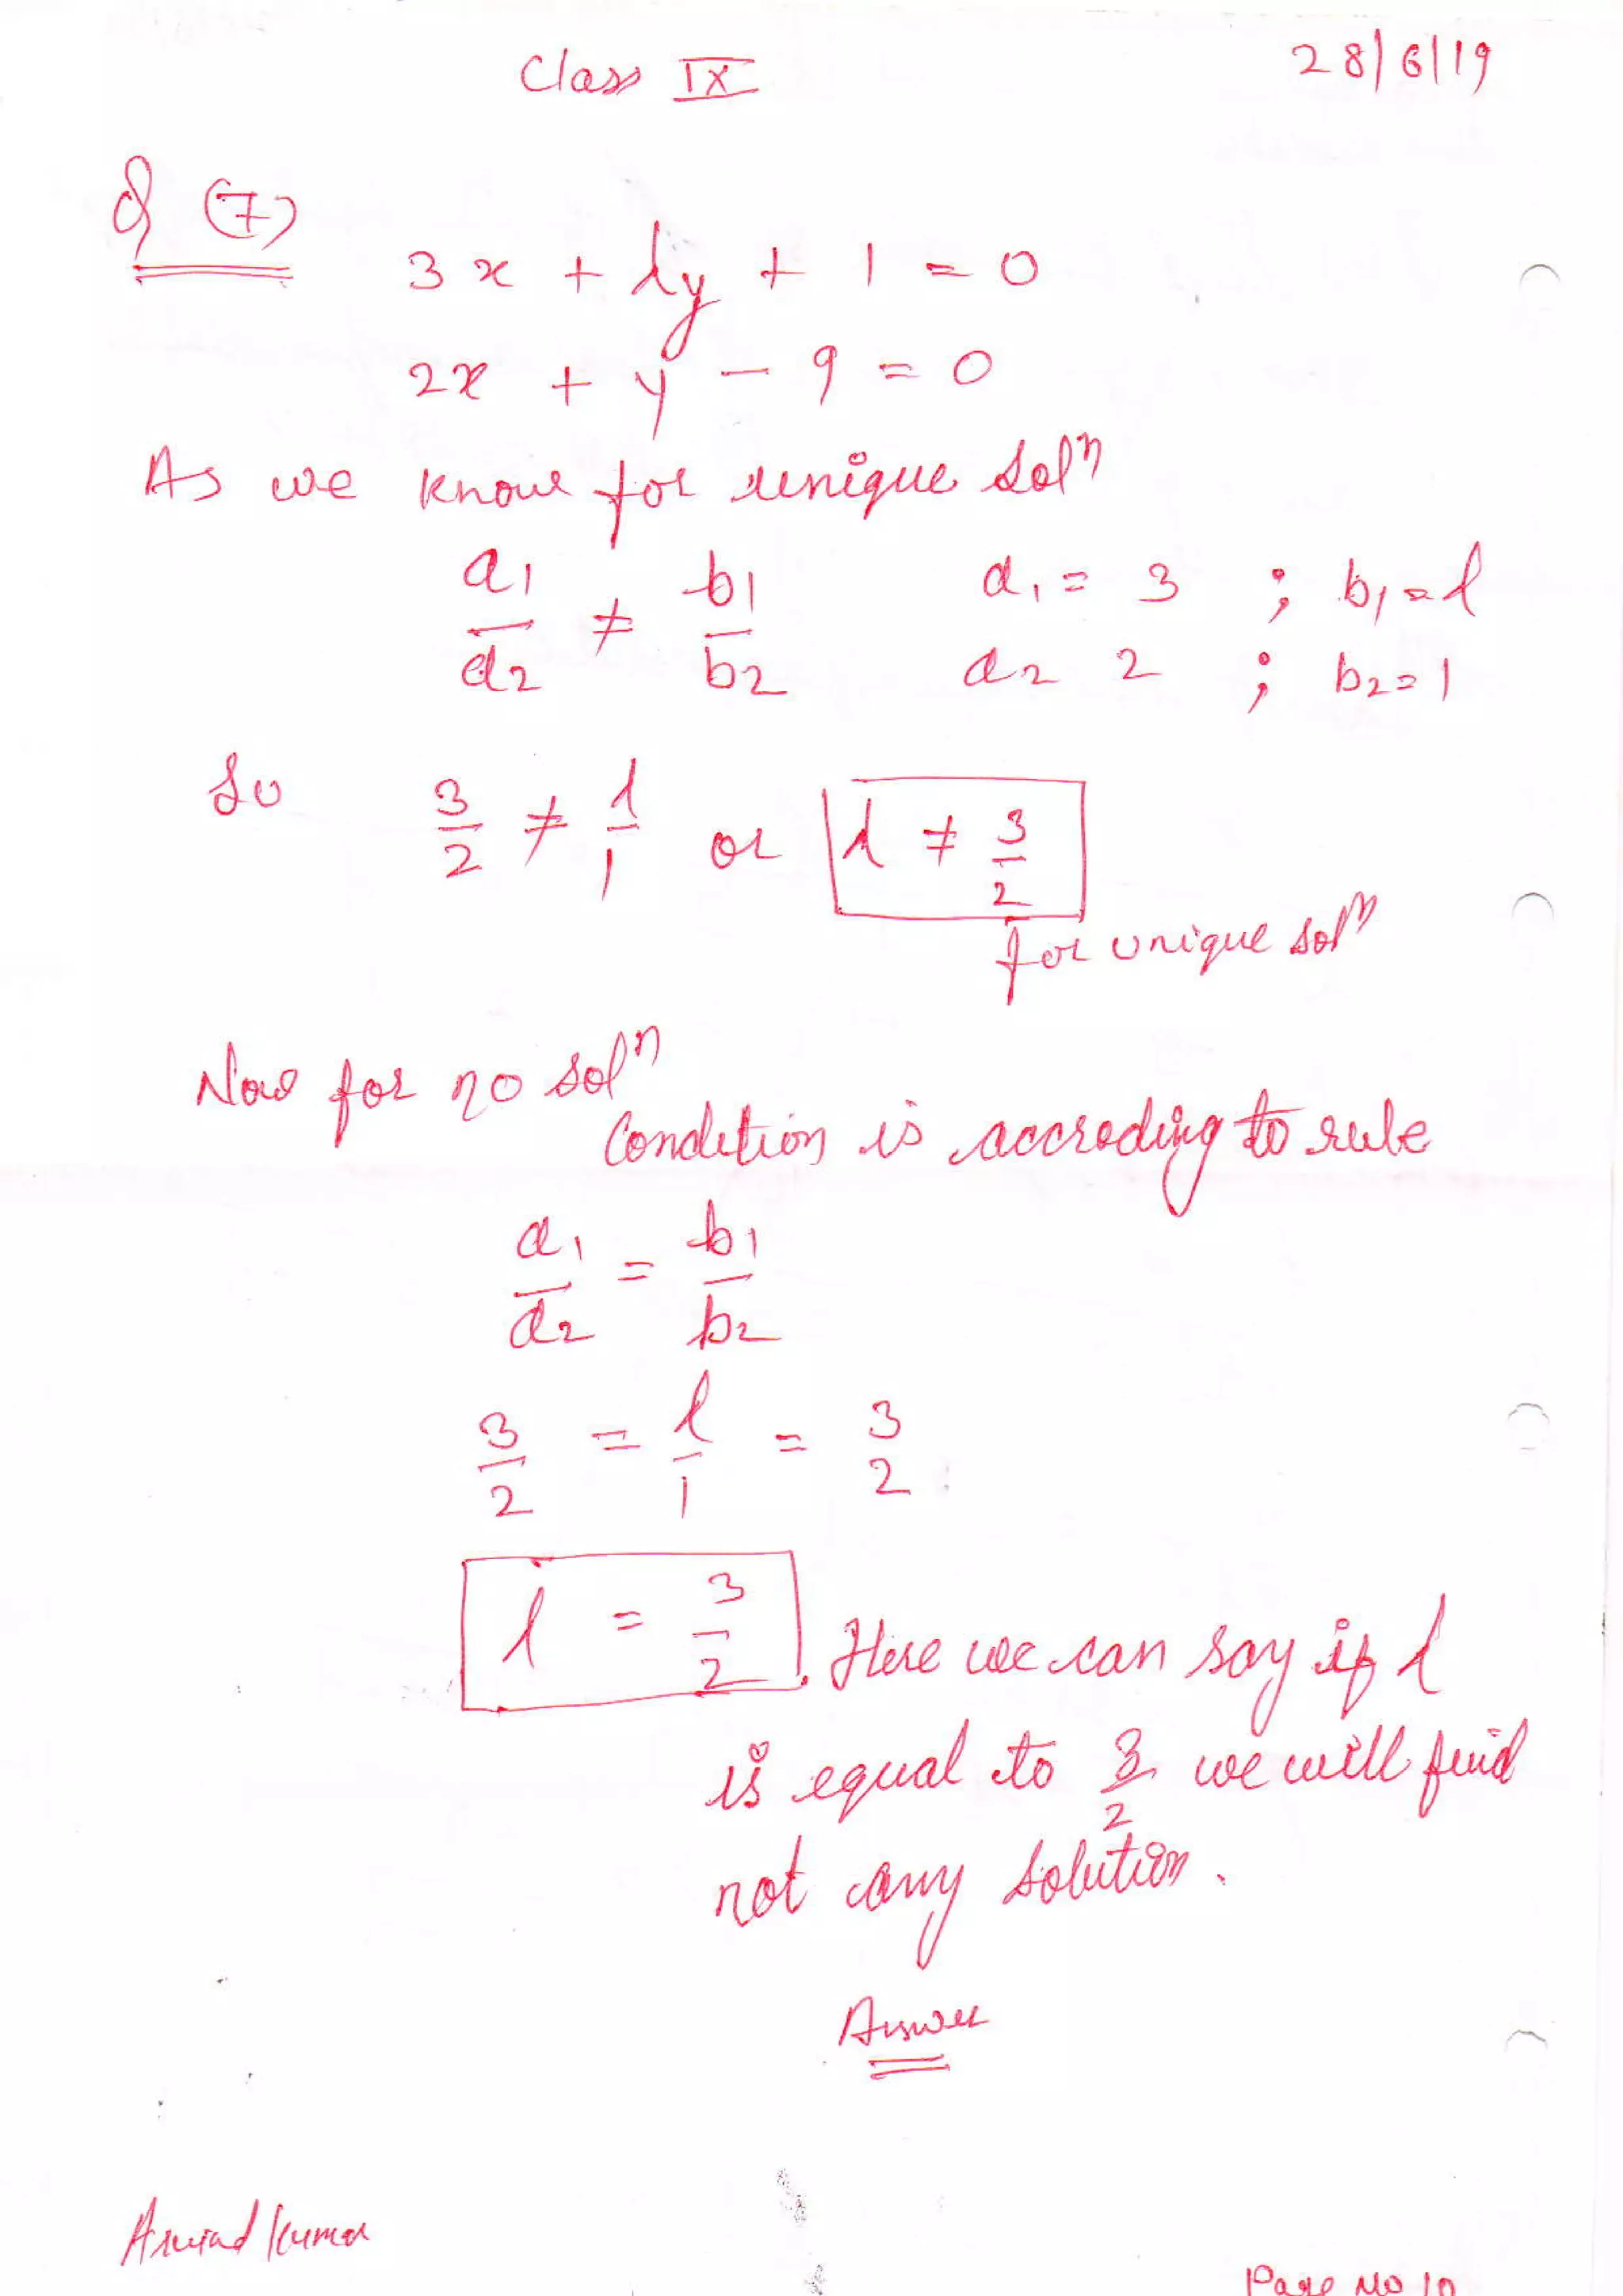 Class IX
28/6/19
Q (7)
3x + λy + 1 = 0
2x + y - 9 = 0
As we know for unique solⁿ
a₁/a₂ ≠ b₁/b₂ a₁ = 3 ; b₁ = λ
a₂ 2 ; b₂ = 1
So 3/2 ≠ λ/1 or λ ≠ 3/2
for unique solⁿ
Now for no solⁿ
Condition is accroding to rule
a₁/a₂ = b₁/b₂
3/2 = λ/1 = 3/2
λ = 3/2. Here we can say if λ
is equal to 3/2 we will find
not any solution.
Answer
Kumar
Page No 10